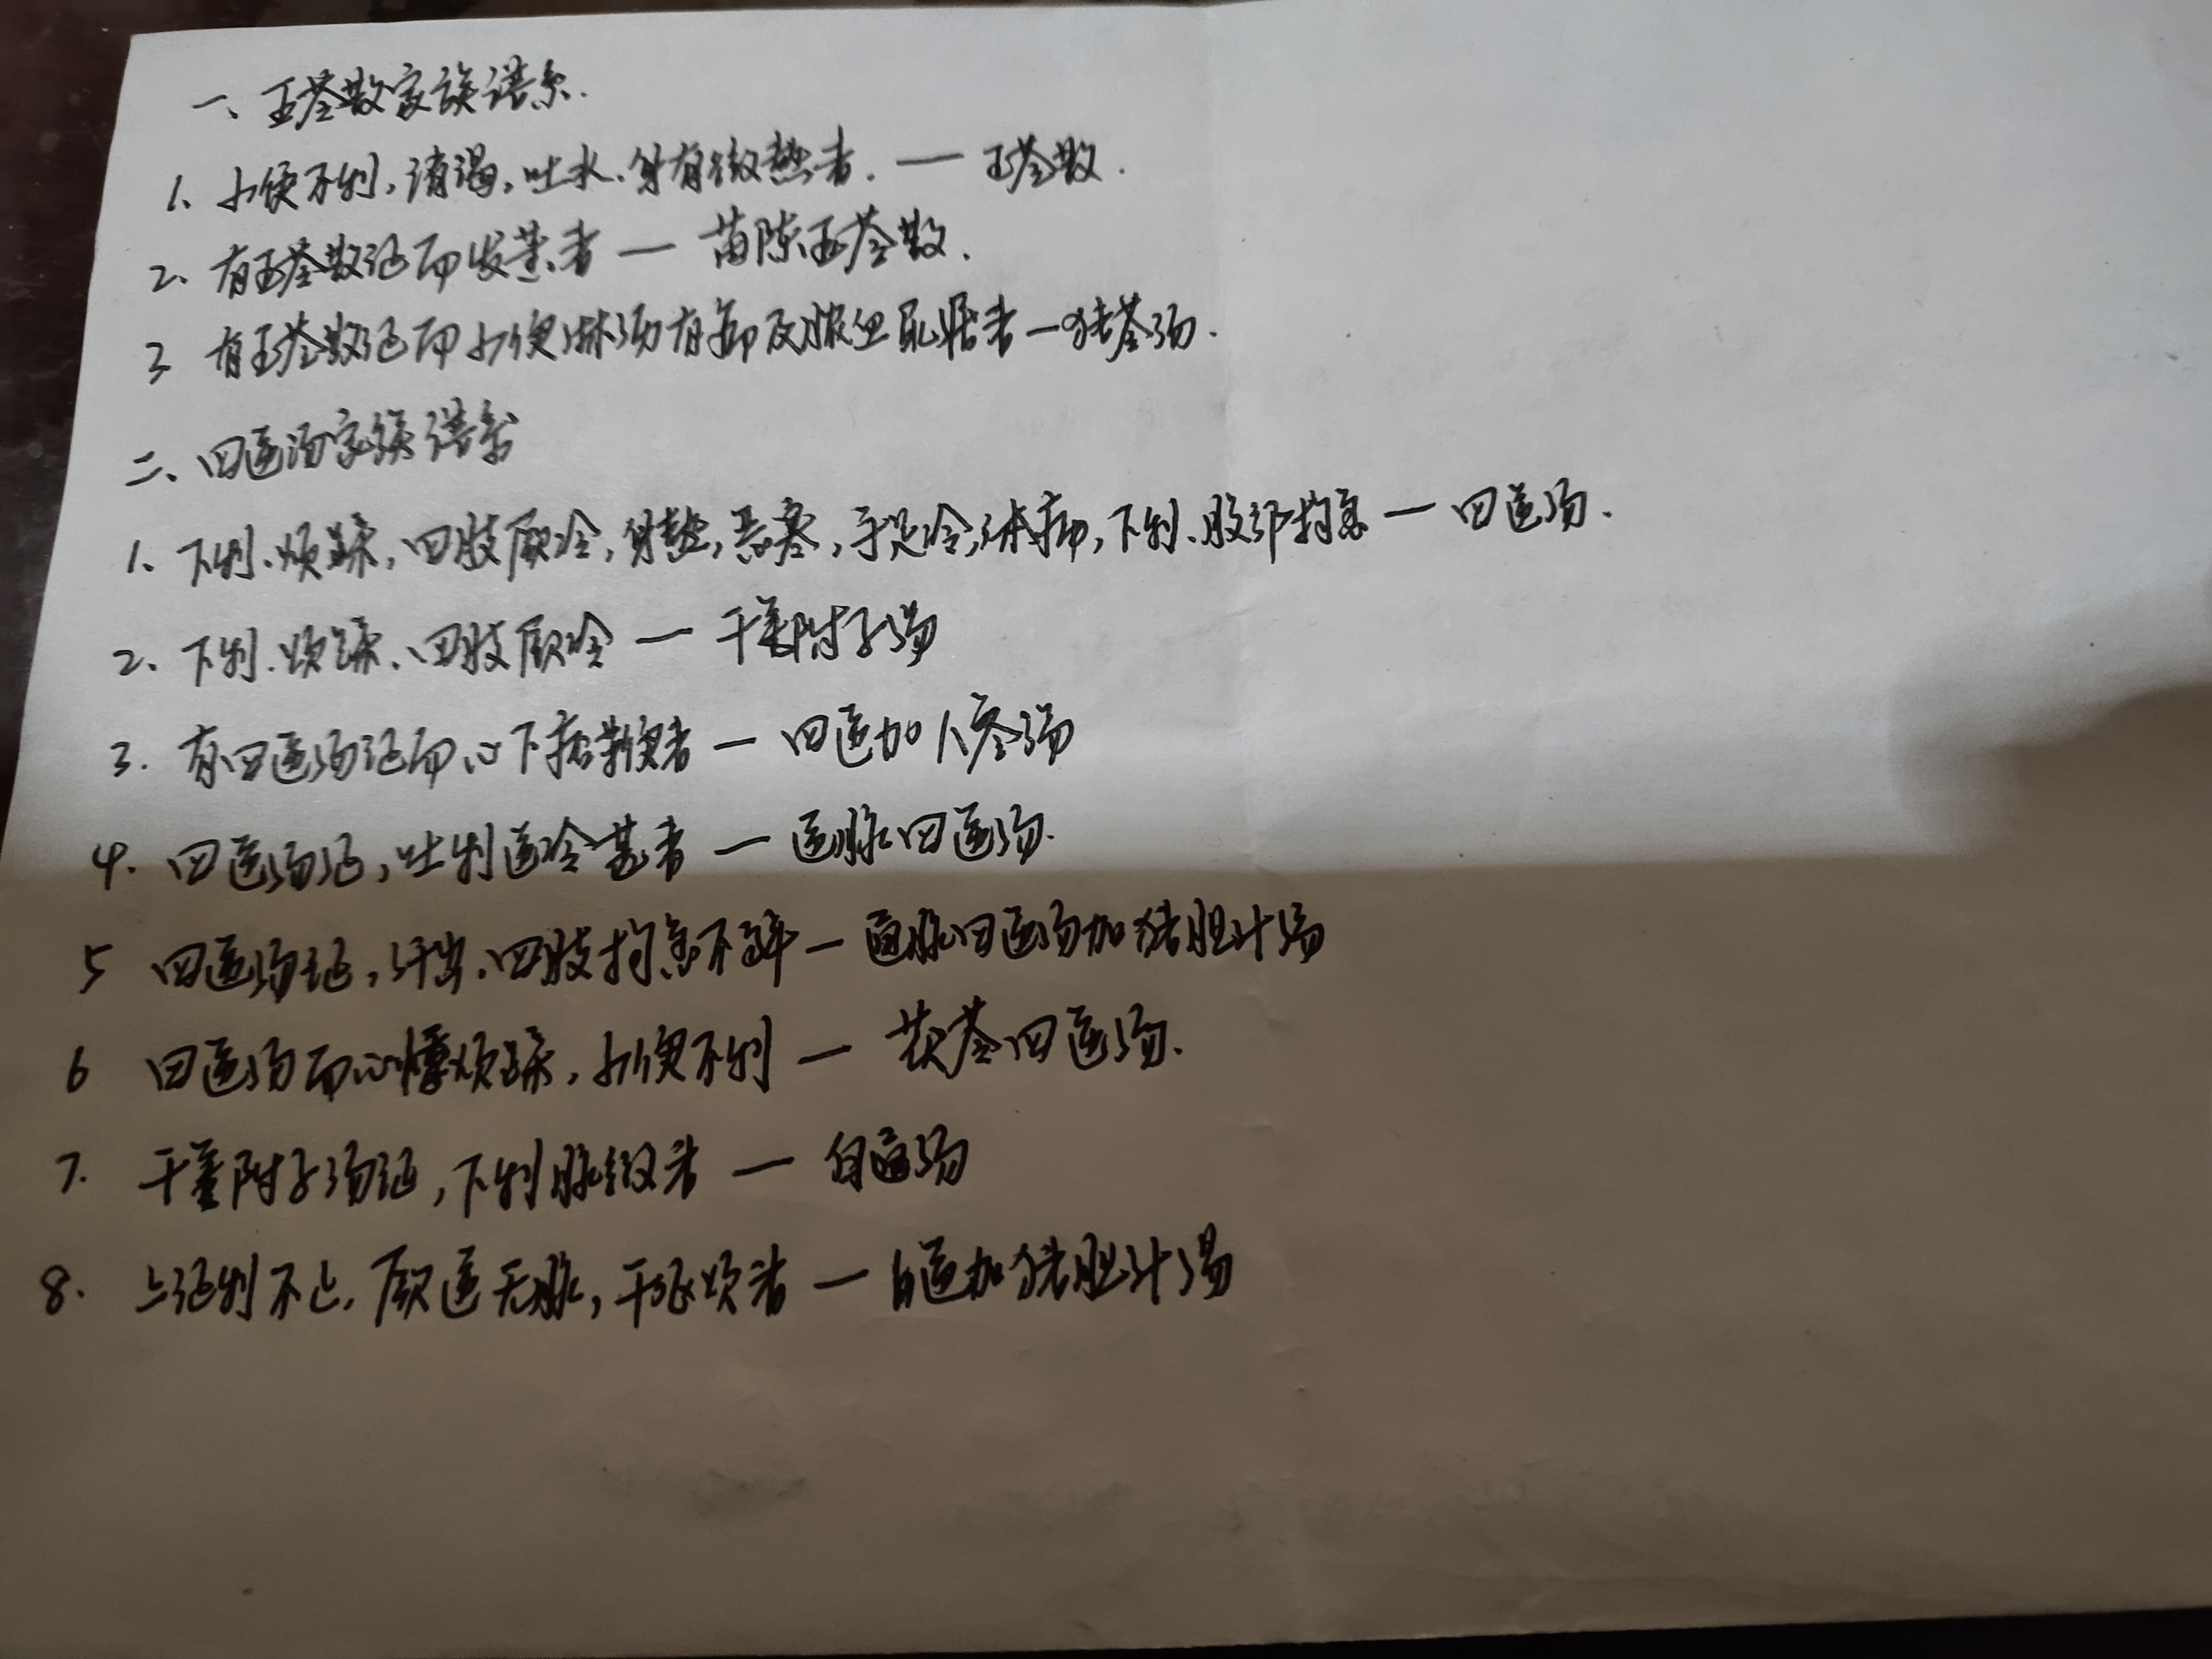 一、五苓散家族谱系.
1、小便不利,消渴,吐水、身有微热者.— 五苓散.
2、有五苓散证而发黄者 — 茵陈五苓散.
3 有五苓散证而小便淋沥有 及脓血 者 — 猪苓汤.
二、四逆汤家族谱系
1、下利、烦躁,四肢厥冷,身 ,恶寒,手足冷,体痛,下利、腹部拘急 — 四逆汤.
2、下利.烦躁、四肢厥冷 — 干姜附子汤
3. 有四逆汤证而心下痞 者 — 四逆加人参汤
4. 四逆汤证,吐利逆冷甚者 — 通脉四逆汤.
5 四逆汤证,汗出.四肢拘急不解 — 通脉四逆汤加猪胆汁汤
6 四逆汤而心悸烦躁,小便不利 — 茯苓四逆汤.
7. 干姜附子汤证,下利脉微者 — 白通汤
8. 上证利不止.厥逆无脉,干呕烦者 — 白通加猪胆汁汤